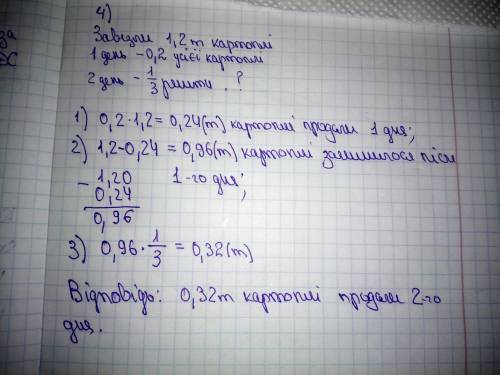 за
4)
Завезли 1,2 т картоплі
1 день - 0,2 усієї картоплі
2 день - 1/3 решти. ?
1) 0,2 · 1,2 = 0,24(т) картоплі продали 1 дня;
2) 1,2-0,24 = 0,96(т) картоплі залишилося після
- 1,20 1-го дня;
0,24
0,96
3) 0,96 · 1/3 = 0,32(т)
Відповідь: 0,32т картоплі продали 2-го
дня.